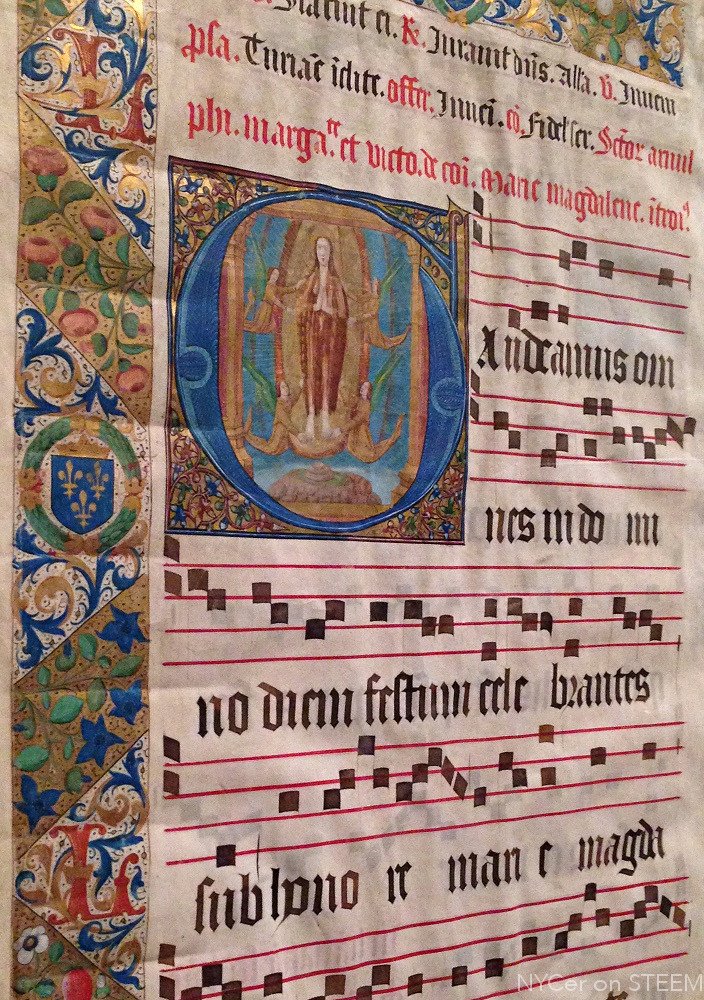 Statuit ei. R. Jurauit dñs. Alla. V. Inueni
psa. offer. Inueni. cõ. Fidel' ser. Sctõr arnul
phi. marga.te et victo. de coi. Marie magdalene. itroi.
GAudeamus om
nes in do mi
no diem festum cele brantes
sub hono re mari e magda
L
L
NYCer on STEEM